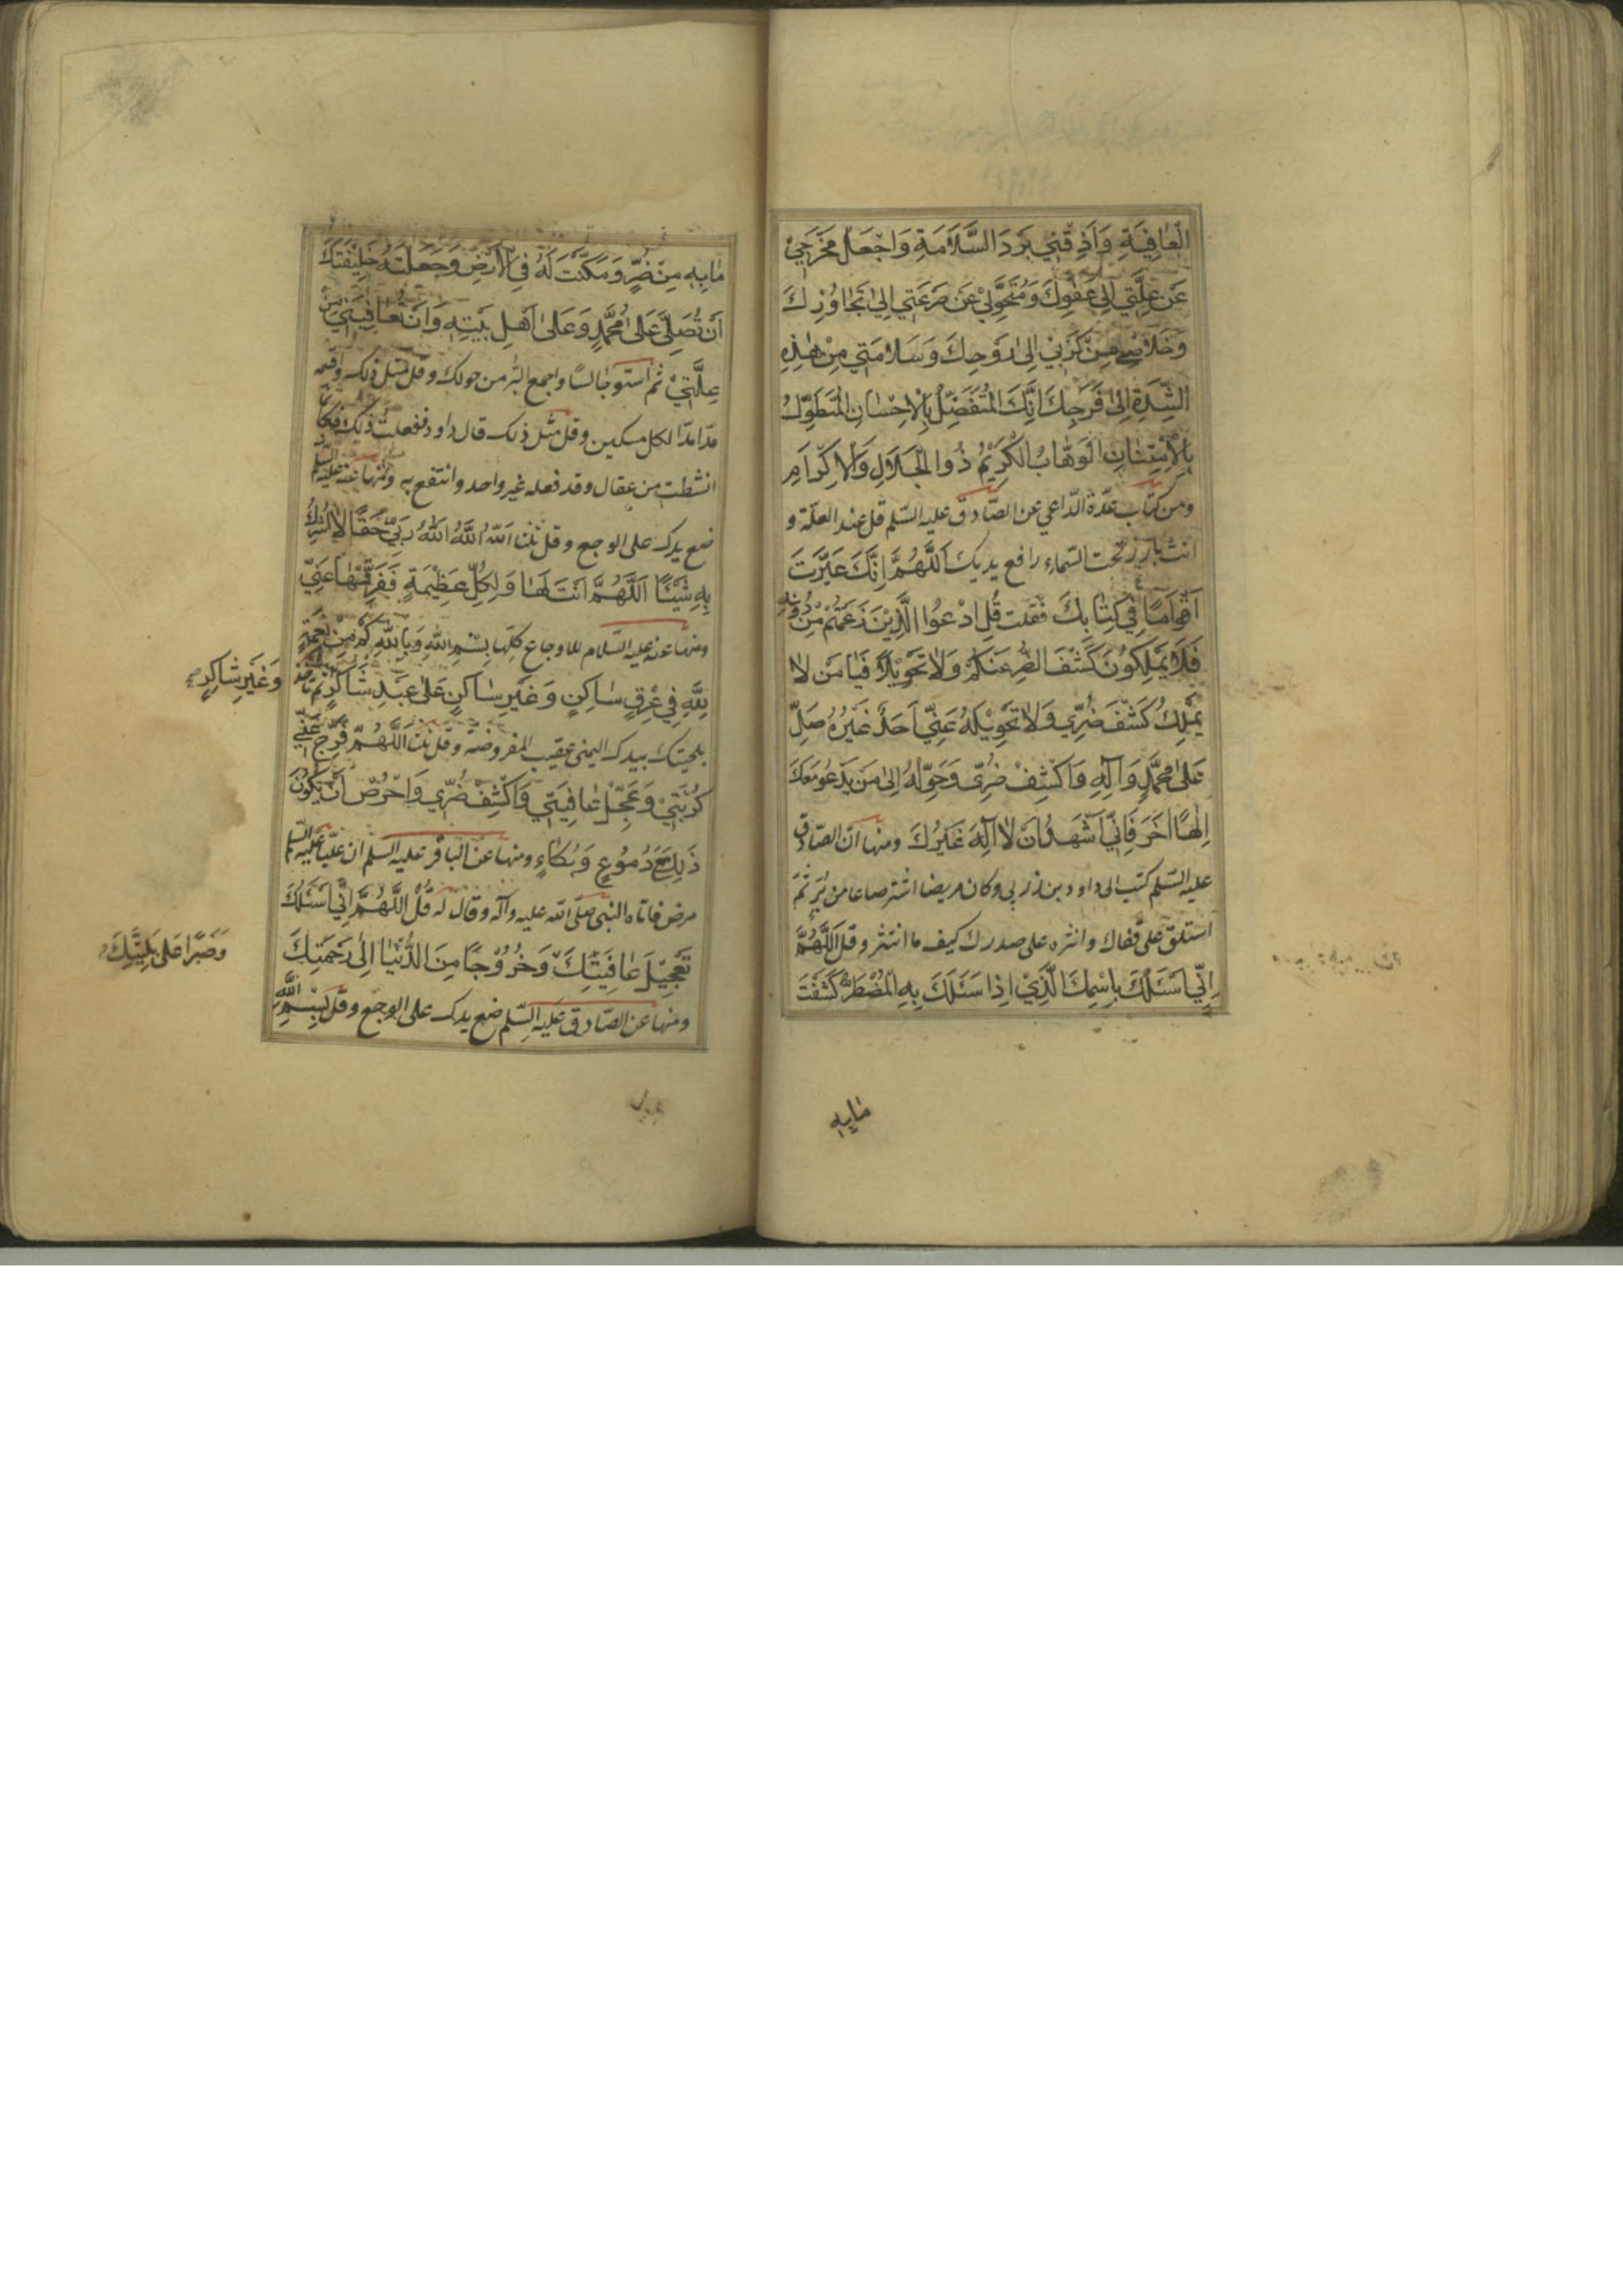 الْعافِيَةِ وَاَذِقْنِي بَرْدَ السَّلَامَةِ وَاجْعَلْ مَخْرَجِيْ
عَنْ عِلَّتِي اِلىٰ عَفْوِكَ وَمُتَحَوَّلِيْ عَنْ صَرْعَتِي اِلىٰ تَجٰاوُزِكَ
وَخَلَاصِي مِنْ كَرْبِيْ اِلىٰ رَوْحِكَ وَسَلامَتِي مِنْ هٰذِهِ
الشِّدَةِ اِلىٰ فَرَجِكَ اِنَّكَ الْمُتَفَضِّلُ بِالْاِحْسٰانِ الْمُتَطَوِّلُ
بِالْاِمْتِنٰانِ الْوَهّٰابُ الْكَرِيْمُ ذُوا الْجَلَالِ وَالْاِكْرَامِ
ومن كتاب عدّة الدّاعي عن الصّادق عليه السّلم قل عند العلّة و
انت بارز تحت السّماء رافع يديك اَللّٰهُمَّ اِنَّكَ عَيَّرْتَ
اَقْوَامًا فِيْ كِتٰابِكَ فَقُلْتَ قُلِ ادْعُوا الَّذِيْنَ زَعَمْتُمْ مِنْ دُونِهِ
فَلَا يَمْلِكُوْنَ كَشْفَ الضُّرِّ عَنْكُمْ وَلٰا تَحْوِيْلًا فَيٰا مَنْ لٰا
يَمْلِكُ كَشْفَ ضُرِّي وَلٰا تَحْوِيْلَهُ عَنِّيْ اَحَدٌ غَيْرُهُ صَلِّ
عَلىٰ مُحَمَّدٍ وَآلِهِ وَاكْشِفْ ضُرِّى وَحَوِّلْهُ اِلىٰ مَنْ يَدْعُو مَعَكَ
اِلٰهًا اٰخَرَ فَاِنِّيْ اَشْهَدُ اَنْ لٰا اِلٰهَ غَيْرُكَ ومنها انّ الصّادق
عليه السّلم كتب الى داود بن زربي وكان مريضا اشتر صاعا من بُرّ ثمّ
استلق على قفاك وانثره على صدرك كيف ما انتثر وقل اَللّٰهُمَّ
اِنِّيْ اَسْئَلُكَ بِاسْمِكَ الَّذِيْ اِذٰا سَئَلَكَ بِهِ الْمُضْطَرُّ كَشَفْتَ
مٰابِهِ
مٰابِهِ مِنْ ضُرٍّ وَمَكَّنْتَ لَهُ فِى الْاَرْضِ وَجَعَلْتَهُ خَلِيْفَتَكَ
اَنْ تُصَلِّىَ عَلىٰ مُحَمَّدٍ وَعَلىٰ اَهْلِ بَيْتِهِ وَاَنْ تُعٰافِيَنِيْ مِنْ
عِلَّتِيْ ثمّ استو جالسًا واجمع البُرّ من حولك وقل مثل ذلك واقسمه
مدّا مدّا لكل مسكين وقل مثل ذلك قال داود ففعلت ذلك فكانّما
انشطت من عقال وقد فعله غير واحد وانتفع به ومنها عنه عليه السّلم
ضع يدك على الوجع وقل ثلثا اَللّٰهُ اَللّٰهُ اَللّٰهُ رَبِّيْ حَقًّا لٰا اُشْرِكُ
بِهِ شَيْئًا اَللّٰهُمَّ اَنْتَ لَهٰا وَلِكُلِّ عَظِيْمَةٍ فَفَرِّقْهٰا عَنِّيْ
ومنها عنه عليه السّلام للاوجاع كلّها بِسْمِ اللّٰهِ وَبِاللّٰهِ كَمْ مِنْ نِعْمَةٍ
لِلّٰهِ فِيْ عِرْقٍ سٰاكِنٍ وَغَيْرِ سٰاكِنٍ عَلىٰ عَبْدٍ شٰاكِرٍ ثم تأخذ
وَغَيْرِ شٰاكِرٍ
بلحيتك بيدك اليمنى عقيب المفروضة وقل ثلثا اَللّٰهُمَّ فَرِّجْ عَنِّي
كُرْبَتِيْ وَعَجِّلْ عٰافِيَتِيْ وَاكْشِفْ ضُرِّيْ وَاحْرُصْ اَنْ يَكُوْنَ
ذٰلِكَ مَعَ دُمُوْعٍ وَبُكٰاءٍ ومنها عن الباقر عليه السلم ان عليّا عليه السّلم
مرض فاتاه النبى صلّى اللّه عليه وآله وقال له قُلْ اَللّٰهُمَّ اِنِّيْ اَسْئَلُكَ
تَعْجِيْلَ عٰافِيَتِكَ وَخُرُوْجًا مِنَ الدُّنْيٰا اِلىٰ رَحْمَتِكَ
وَصَبْرًا عَلىٰ بَلِيَّتِكَ
ومنها عن الصّادق عليه السّلم ضع يدك على الوجع وقل بِسْمِ اللّٰهِ